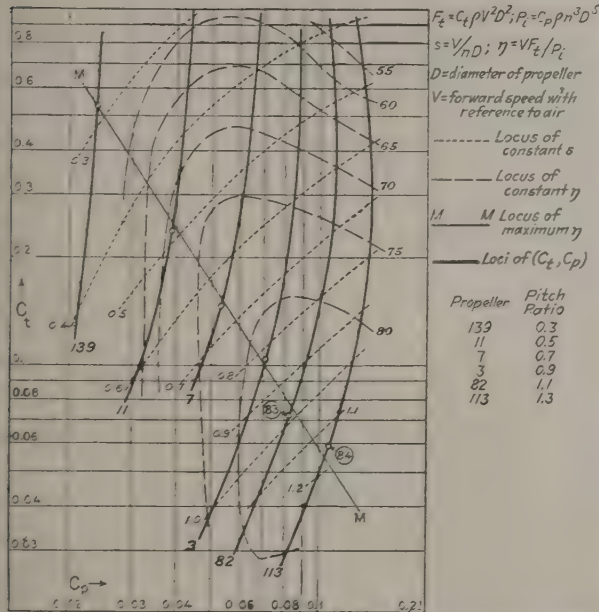 F_t=C_tρV²D²; P_i=C_pρn³D⁵
s=V/nD; η=VF_t/P_i
D=diameter of propeller
V=forward speed with
reference to air
Locus of
constant s
Locus of
constant η
M M Locus of
maximum η
Loci of (C_t, C_p)
Propeller Pitch
Ratio
139 0.3
11 0.5
7 0.7
3 0.9
82 1.1
113 1.3
0.8
0.6
0.5
0.4
0.3
0.2
C_t
0.1
0.08
0.06
0.04
0.03
C_p→
0.02 0.03 0.04 0.06 0.08 0.1 0.21
M
55
60
65
70
75
80
0.3
0.4
0.5
0.6
0.8
0.9
1.0
1.1
1.2
139
11
7
3
82
113
83
84
M